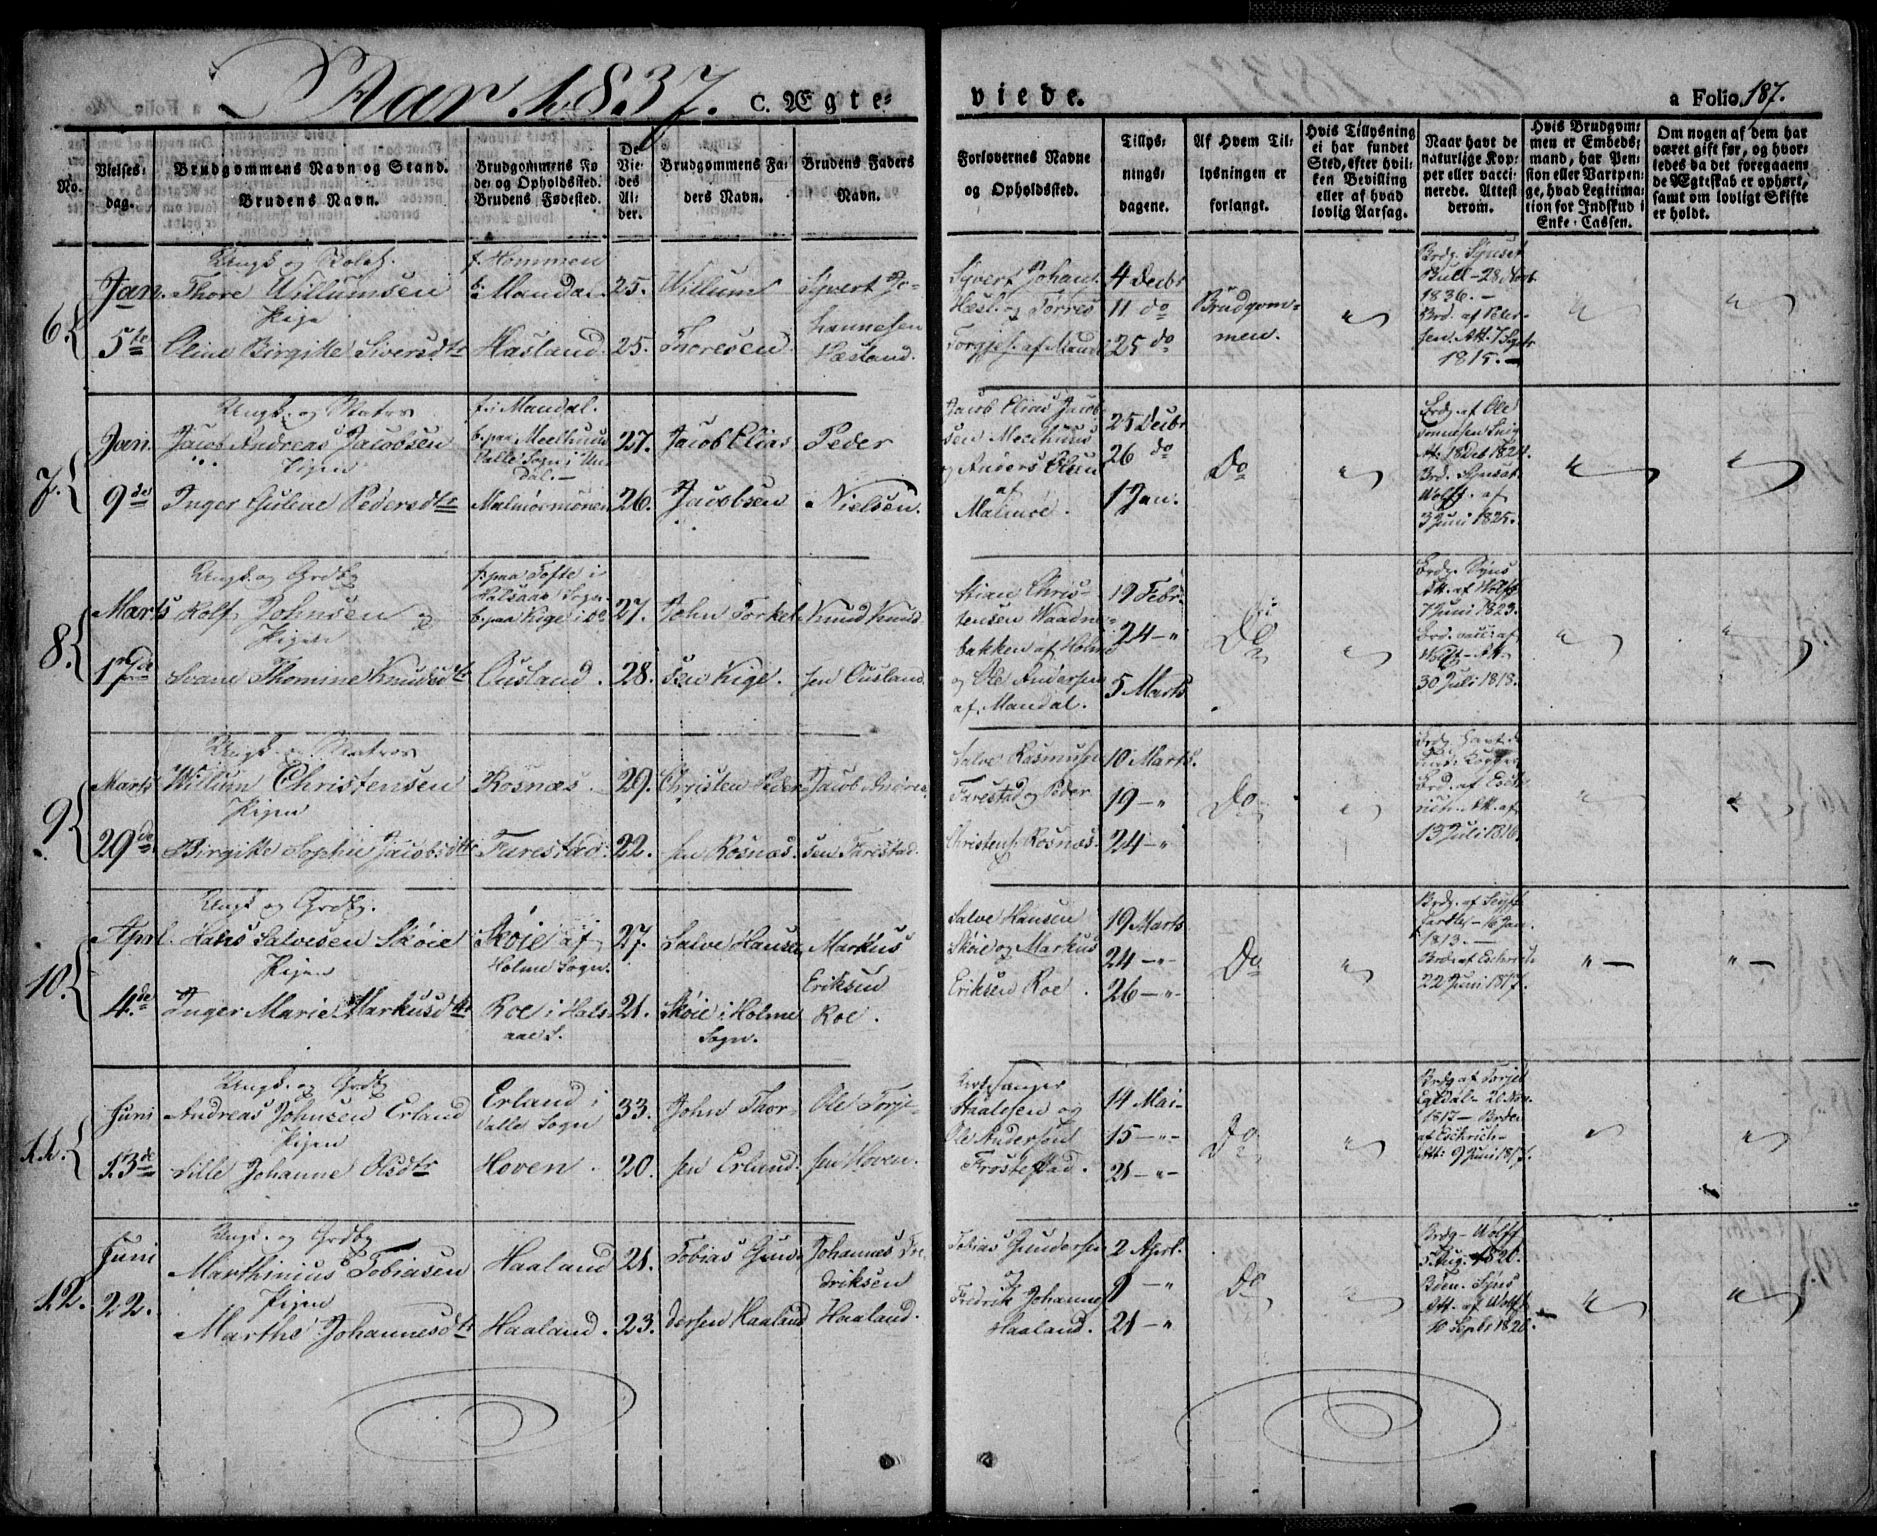 Aar 1837. C. Ægte-
viede. a Folio 187.
No.
Vielses-
dag.
Brudgommens Navn og Stand.
Brudens Navn.
Brudgommens Fø-
de- og Opholdssted.
Brudens Fødested.
De
Vie-
des
Al-
der.
Brudgommens Fa-
ders Navn.
Brudens Faders
Navn.
Forlovernes Navne
og Opholdssted.
Tillys-
nings-
dagene.
Af Hvem Til-
lysningen er
forlangt.
Hvis Tillysning
ei har fundet
Sted, efter hvil-
ken Bevilling
eller af hvad
lovlig Aarsag.
Naar havt de
naturlige Kop-
per eller vacci-
nerede. Attest
derom.
Hvis Brudgom-
men er Embeds-
mand, har Pen-
sion eller Vartpen-
ge, hvad Legitima-
tion for Indskud i
Enke-Cassen.
Om nogen af dem har
været gift før, og hvor-
ledes da det foregaaen-
de Ægteskab er ophørt,
samt om lovligt Skifte
er holdt.
6.
Jan.
5te
Ungk. og
Thore Willumsen
Pige
Oline Birgitte Siversdtr
f. Hommen
b. Mandal.
Hæsland.
25.
25.
Willum
Thoresen
Syvert Jo-
hannesen
Hæsland.
Syvert Johan.
Hæsl. og Torres
Torgjes. af Mandl
4 Decbr
11 do
25 do
Brudgom-
men.
"
Brdg.
Bull - 28
1836. -
Brd. af Peter-
sen Att. 7 Sept
1815. -
"
"
7.
Jan.
9de
Ungk. og Matros
Jacob Andreas Jacobsen
Pigen
Inger Gulene Pedersdtr
f. i Mandal.
b. paa Meelhuus
Valle Sogn i Un-
dal. -
Malmømonen
27.
26.
Jacob Elias
Jacobsen
Peder
Nielsen.
Jacob Elias Jacob-
sen Meelhuus
og Anders Olsen
af
Malmøe.
25 Decbr
26 do
1 Jan.
Do
"
Brdg. af Ole
Brd.
Wolff. af
3 Juni 1825.
"
"
8.
Marts
17de
Ungk. og Grdbg
Rolf Johnsen
Pigen
Svane Thomine Knudsdtr
f. paa Tofte i
Halsaae Sogn.
b. paa Kige i do
Ousland.
27.
28.
John Torkel-
sen Kige.
Knud Knud-
sen Ousland.
Stian Chris-
tensen Vaadne-
bakken af Holme
og Ole Andersen
af Mandal.
19 Febr.
24 - "
5 Marts
Do
"
Brdg. Syns
Att. af Wolff
7 Juni 1823.
Brd. vacc: af
Wolff - Att.
30 Juli 1818.
"
"
9.
Marts
29de
Ungk. og Matros
Willum Christensen
Pigen
Birgitte Sophie Jacobsdtr
Rosnæs.
Furestad.
29.
22.
Christen Peder-
sen Rosnæs.
Jacob Andrea-
sen Farestad.
Salve Rasmusen
Farestad og Peder
Christens. Rosnæs.
10 Marts.
19 - "
24 - "
Do
"
Brd. af Esch-
rich. Att. af
13 Juli 1816.
"
"
10.
April.
4de
Ungk og Grdbg.
Hans Salvesen Skøie
Pigen
Inger Marie Markusdtr
Skøie af
Holme Sogn.
Roe i Hals-
aae S.
27.
21.
Salve Hansen
Skøie i Holme
Sogn.
Markus
Eriksen
Roe.
Salve Hansen
Skøie og Markus
Eriksen Roe.
19 Marts
24 - "
26 - "
Do
"
Brdg. af Seyf-
farth - 16 Jan.
1813. -
Brd. af Eschrich
22 Juni 1817.
" -
" -
11.
Juni
13de
Ungk. og Grdbg
Andreas Johnsen Erland
Pigen
Lille Johanne Olsdtr
Erland i
Valle Sogn
Hoven.
33.
20.
John Thor-
sen Erland.
Ole Torje-
sen Hoven.
Kirkesanger
Staalesen og
Ole Andersen
Frøstestad.
14 Mai -
15 - " -
21 - " -
Do
"
Brdg af Torjel
Egeldal - 21 Nov.
1812 - Bruden
af Eschrich -
Att: 9 Juni 1817.
"
"
12.
Juni
22.
Ungk. og Grdbg
Marthinius Tobiasen
Pigen
Marthe Johannesdtr
Haaland
Haaland.
21.
23.
Tobias Gun-
dersen Haaland
Johannes Fre-
driksen
Haaland.
Tobias Gundersen
og
Fredrik Johannes
Haaland.
2 Aprl.
9 - "
21 - "
Do
"
Brdg - Wolff
5 Aug. 1820.
Brden. Syns
Att. af Wolff
10 Septr 1820.
"
"